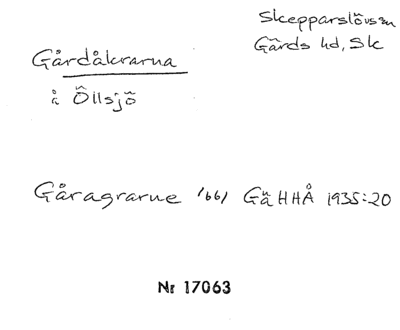 Skepparslövs sn
Gärds hd, Sk
Gårdåkrarna
å Öllsjö
Gåragrarne 1661 GäHHÅ 1935:20
Nr 17063